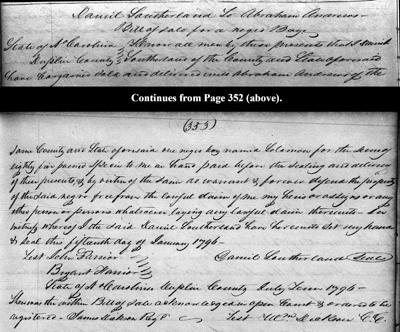 Daniel Southerland To Abraham Andrews
Bill of Sale for a negro Boy
State of No Carolina Know all men by these presents that I Daniel
Duplin County Southerland of the County and State aforesaid
have bargained sold and delivered unto Abraham Andrews of the
Continues from Page 352 (above).
(353)
same County and State aforesaid one negro boy named Solomon for the sum of
eighty five pounds Specie to me in hand paid before the sealing and delivery
of these presents, & by virtue of the same do warrant & forever defend the property
of the said negro free from the lawful claim of me my heirs or assigns or any
other person or persons whatsoever laying any lawful claim thereunto In
witness whereof I the said Daniel Southerland have hereunto set my hand
& seal this fifteenth day of January 1796
Test John Farrior Daniel Southerland Seale
Bryant Farrior
State of No Carolina Duplin County July Term 1796
Then was the within Bill of Sale acknowledged in Open Court & ordered to be
registered - James Register Test Wm Dickson C.C.